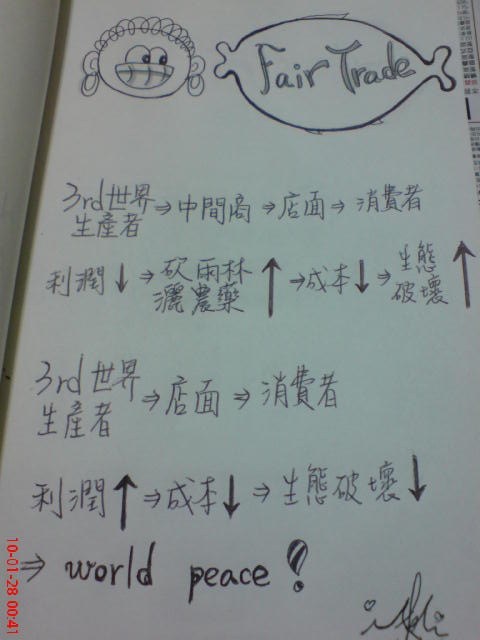 Fair Trade
3rd世界 ⇒ 中間商 ⇒ 店面 ⇒ 消費者
生產者
利潤↓ ⇒ 砍雨林 ↑ ⇒ 成本↓ ⇒ 生態 ↑
灑農藥 破壞
3rd世界
生產者 ⇒ 店面 ⇒ 消費者
利潤↑ ⇒ 成本↓ ⇒ 生態破壞↓
⇒ world peace !
10-01-28 00:41